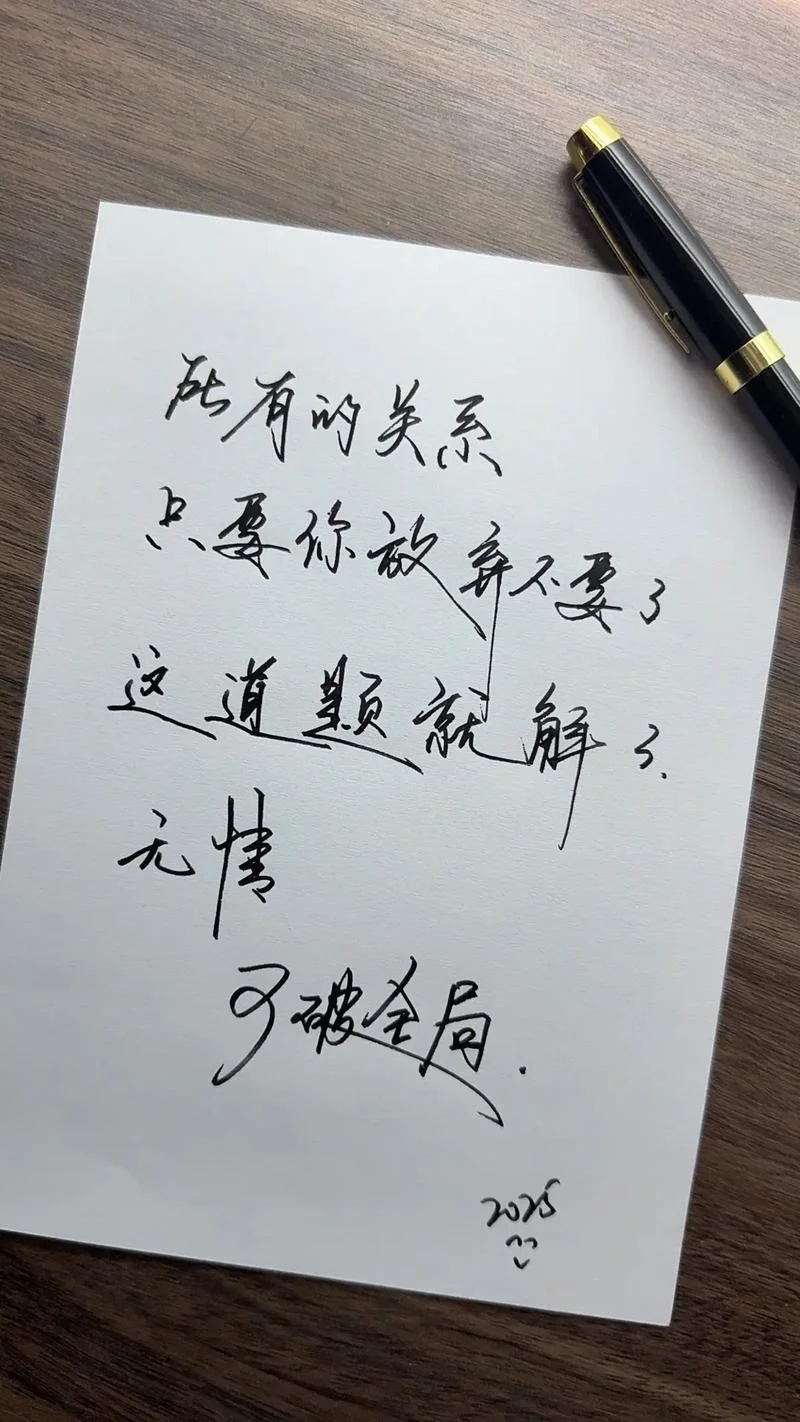 所有的关系
只要你放弃不要了
这道题就解了.
无情
可破全局.
2025